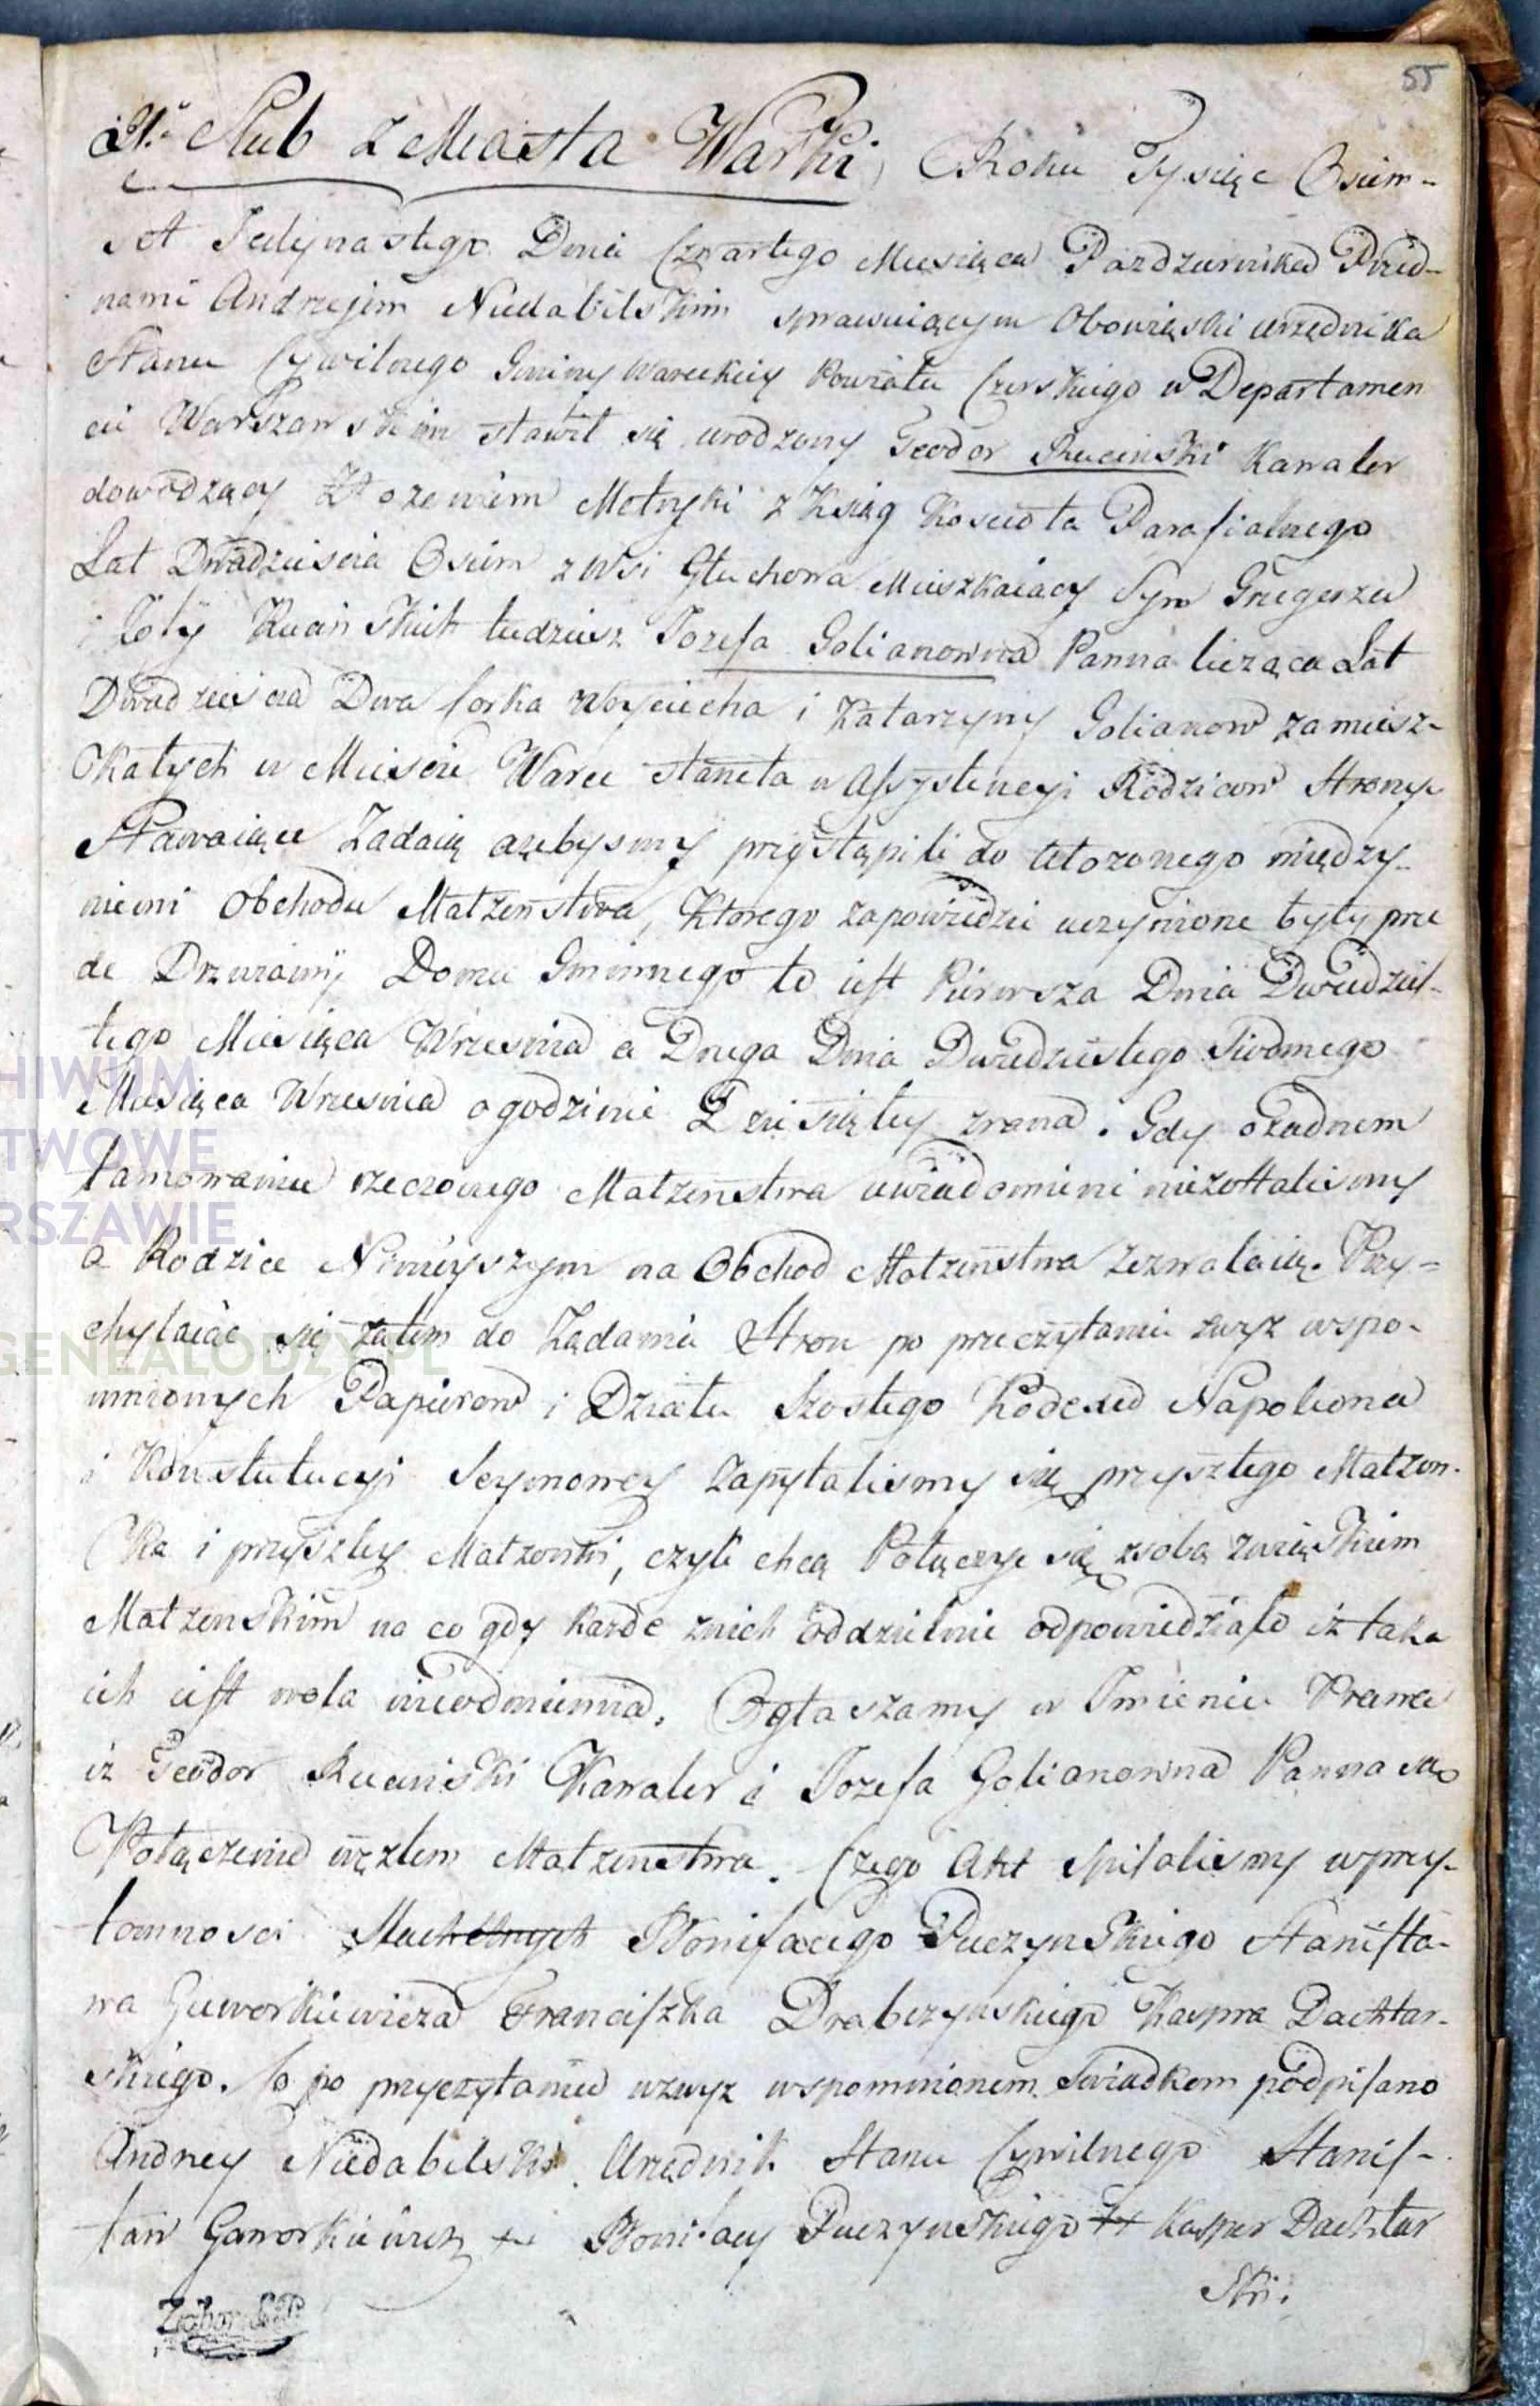 55
Slub z Miasta Warki, Roku Tysiąc Osim-
set Jedynastego Dnia Czwartego Miesiąca Pazdziernika Przed-
nami Andrzejem Niedabilskim sprawuiącym Obowiąski urzędnika
Stanu Cywilnego Gminy Wareckiey Powiatu Czerskiego w Departamen
cie Warszawskim stawił się urodzony Teodor Ruciński Kawaler
dowodzący Złozeniem Metryki z Xsiąg Koscioła Parafialnego
Lat Dwadziescia Osim z wsi Głuchowa Mieszkaiący Syn Grzegorza
i Zofij Rucinskich tudziesz Jozefa Golianowna Panna licząca Lat
Dwadziescia Dwa Corka Woyciecha i Katarzyny Golianow zamiesz-
Kałych w Miescie Warce staneła w Assystencyi Rodzicow Strony
Stawaiące Ządaią azebysmy przystąpili do ułozonego między-
niemi Obchodu Małzenstwa, Ktorego zapowiedzie uczynione były prze
de Drzwiamij Domu Gminnego to iest Pierwsza Dnia Dwudzies-
tego Miesiąca Wrzesnia a Druga Dnia Dwudziestego Siodmego
Miesiąca Wrzesnia o godzinie Dziesiątey zrana. Gdy o Zadnem
tamowaniu rzeczonego Małzenstwa uwiadomieni niezostalismy
a Rodzice Ninieyszym na Obchod Małzenstwa Zezwalaią. Przy-
chylaiąc się zatem do Ządania Stron po przeczytaniu zwyz wspo-
mnionych Papierow i Działu Szostego Kodexu Napoleona
i Konstytucyi Seymowey Zapytalismy się przyszłego Małzon-
Ka i przyszłey Małzonki, czyli chcą Połączyc się zsobą związkiem
Małzenskim na co gdy kazde znich oddzielnie odpowiedziało iż taka
ich iest wola nieodmienna. Ogłaszamy w Imieniu Prawa
iż Teodor Ruciński Kawaler i Jozefa Golianowna Panna są
Połączenie węzlem Małzenstwa. Czego Akt spisalismy w przy-
tomnosci Bonifacego Puczynskiego Stanisła-
wa Gaworkiewicza Franciszka Drabczynskiego Kaspra Dachtar-
skiego. Co po przyczytaniu wzwyz wspomnionem Swiadkom podpisano
Andrzey Niedabilski Urzędnik Stanu Cywilnego Stanis-
ław Gaworkiewicz Bonifacy Puczynskiego Kasper Dachtar
Ski.